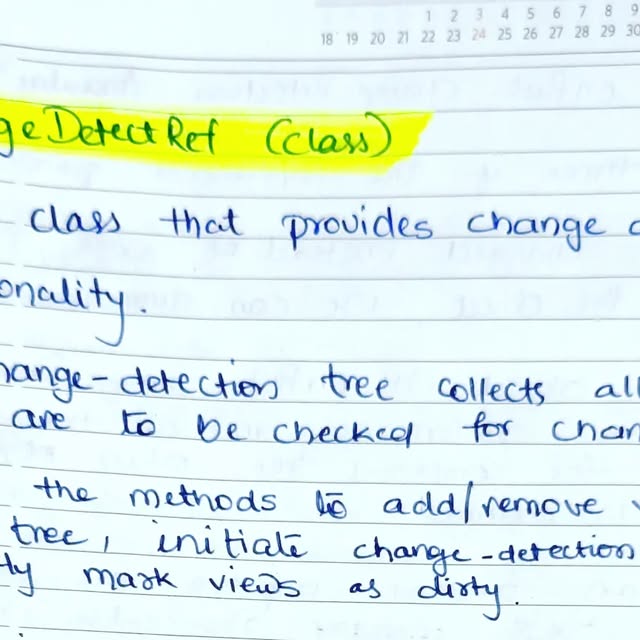 1 2 3 4 5 6 7 8 9
18 19 20 21 22 23 24 25 26 27 28 29 30
geDetectRef (class)
class that provides change d
onality.
hange-detection tree collects all
are to be checked for chan
the methods to add/remove v
tree, initiate change-detection
tly mark views as dirty.